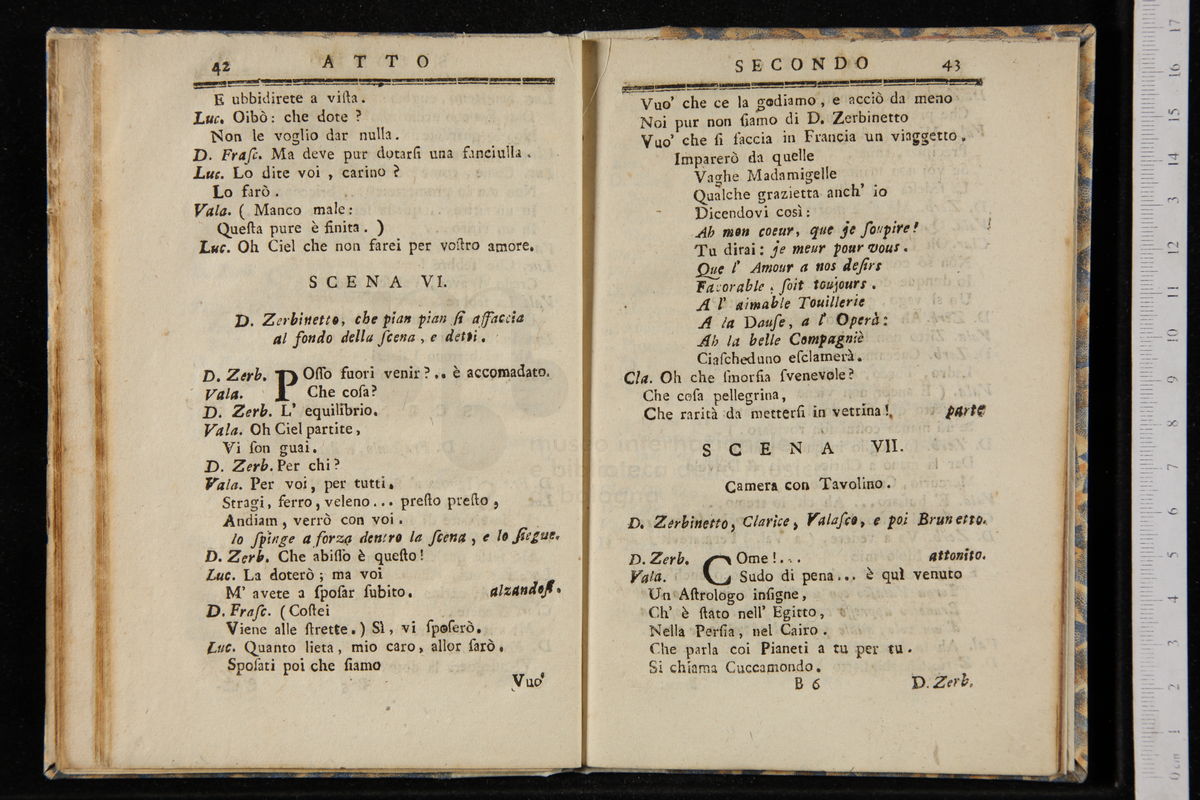 42 ATTO
E ubbidirete a viſta.
Luc. Oibò: che dote ?
Non le voglio dar nulla.
D. Fraſc. Ma deve pur dotarſi una fanciulla.
Luc. Lo dite voi , carino ?
Lo farò .
Vala. ( Manco male:
Queſta pure è finita. )
Luc. Oh Ciel che non farei per voſtro amore.
SCENA VI.
D. Zerbinetto, che pian pian ſi affaccia
al fondo della ſcena, e detti.
D. Zerb. POſſo fuori venir?.. è accomadato.
Vala. Che coſa?
D. Zerb. L' equilibrio.
Vala. Oh Ciel partite,
Vi ſon guai.
D. Zerb. Per chi?
Vala. Per voi, per tutti.
Stragi, ferro, veleno... preſto preſto ,
Andiam , verrò con voi .
lo ſpinge a forza dentro la ſcena , e lo ſiegue.
D. Zerb. Che abiſſo è queſto!
Luc. La doterò ; ma voi
M' avete a ſpoſar ſubito. alzandoſi.
D. Fraſc. (Coſtei
Viene alle ſtrette.) Sì, vi ſpoſerò.
Luc. Quanto lieta, mio caro, allor ſarò.
Spoſati poi che ſiamo
Vuo'
SECONDO 43
Vuo' che ce la godiamo , e acciò da meno
Noi pur non ſiamo di D. Zerbinetto
Vuo' che ſi faccia in Francia un viaggetto.
Imparerò da quelle
Vaghe Madamigelle
Qualche grazietta anch' io
Dicendovi così:
Ah mon coeur, que je ſoupire!
Tu dirai: je meur pour vous.
Que l' Amour a nos deſirs
Favorable , ſoit toujours .
A l' aimable Touillerie
A la Dauſe, a l' Operà:
Ah la belle Compagniè
Ciaſcheduno eſclamerà.
Cla. Oh che ſmorfia ſvenevole?
Che coſa pellegrina,
Che rarità da metterſi in vetrina! parte
SCENA VII.
Camera con Tavolino.
D. Zerbinetto, Clarice, Valaſco, e poi Brunetto.
D. Zerb. COme!... attonito.
Vala. Sudo di pena... è quì venuto
Un Aſtrologo inſigne,
Ch' è ſtato nell' Egitto,
Nella Perſia, nel Cairo.
Che parla coi Pianeti a tu per tu.
Si chiama Cuccamondo.
B 6 D. Zerb.